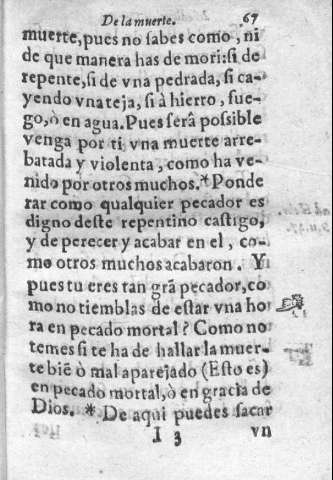 De la muerte. 67
muerte, pues no sabes como, ni
de que manera has de mori: si de
repente, si de vna pedrada, si ca-
yendo vna teja, si à hierro, fue-
go, ò en agua. Pues serâ possible
venga por ti vna muerte arre-
batada y violenta, como ha ve-
nido por otros muchos. * Ponde
rar como qualquier pecador es
digno deste repentino castigo,
y de perecer y acabar en el, co-
mo otros muchos acabaron. Y
pues tu eres tan grã pecador, co
mo no tiemblas de estar vna ho
ra en pecado mortal? Como no
temes si te ha de hallar la muer-
te biẽ ò mal aparejado (Esto es)
en pecado mortal, ò en gracia de
Dios. * De aqui puedes sacar
I 3 vn